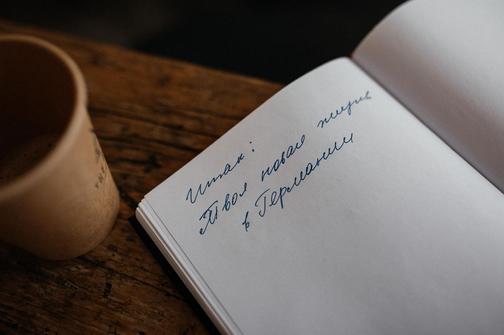 Итак:
Твоя новая жизнь
в Германии